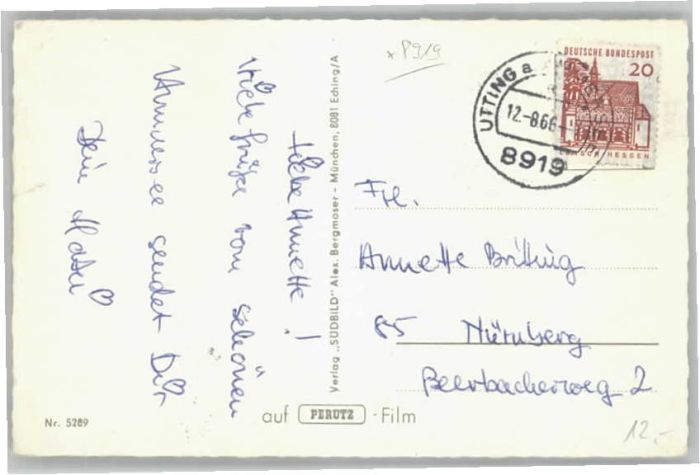 Liebe Annette!
Viele Grüße vom schönen
Ammersee sendet Dir
Dein
Verlag „SÜDBILD" Alex. Bergmoser - München, 8081 Eching/A
* 8919
UTTING a
12.-8.66
8919
DEUTSCHE BUNDESPOST
20
HESSEN
Frl.
Annette Britting
85 Nürnberg
Beerbacherweg 2
Nr. 5289
auf PERUTZ - Film
12,-